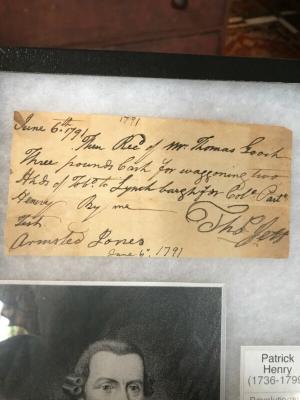 1791
June 6th 1791
Then Recd of Mr Thomas Gooch
Three pounds Cash for waggoning two
Hhds of Tobo to Lynchburgh for Colo Patrk
Henry By me
Test
Armsted Jones
June 6, 1791
Patrick
Henry
(1736-1799